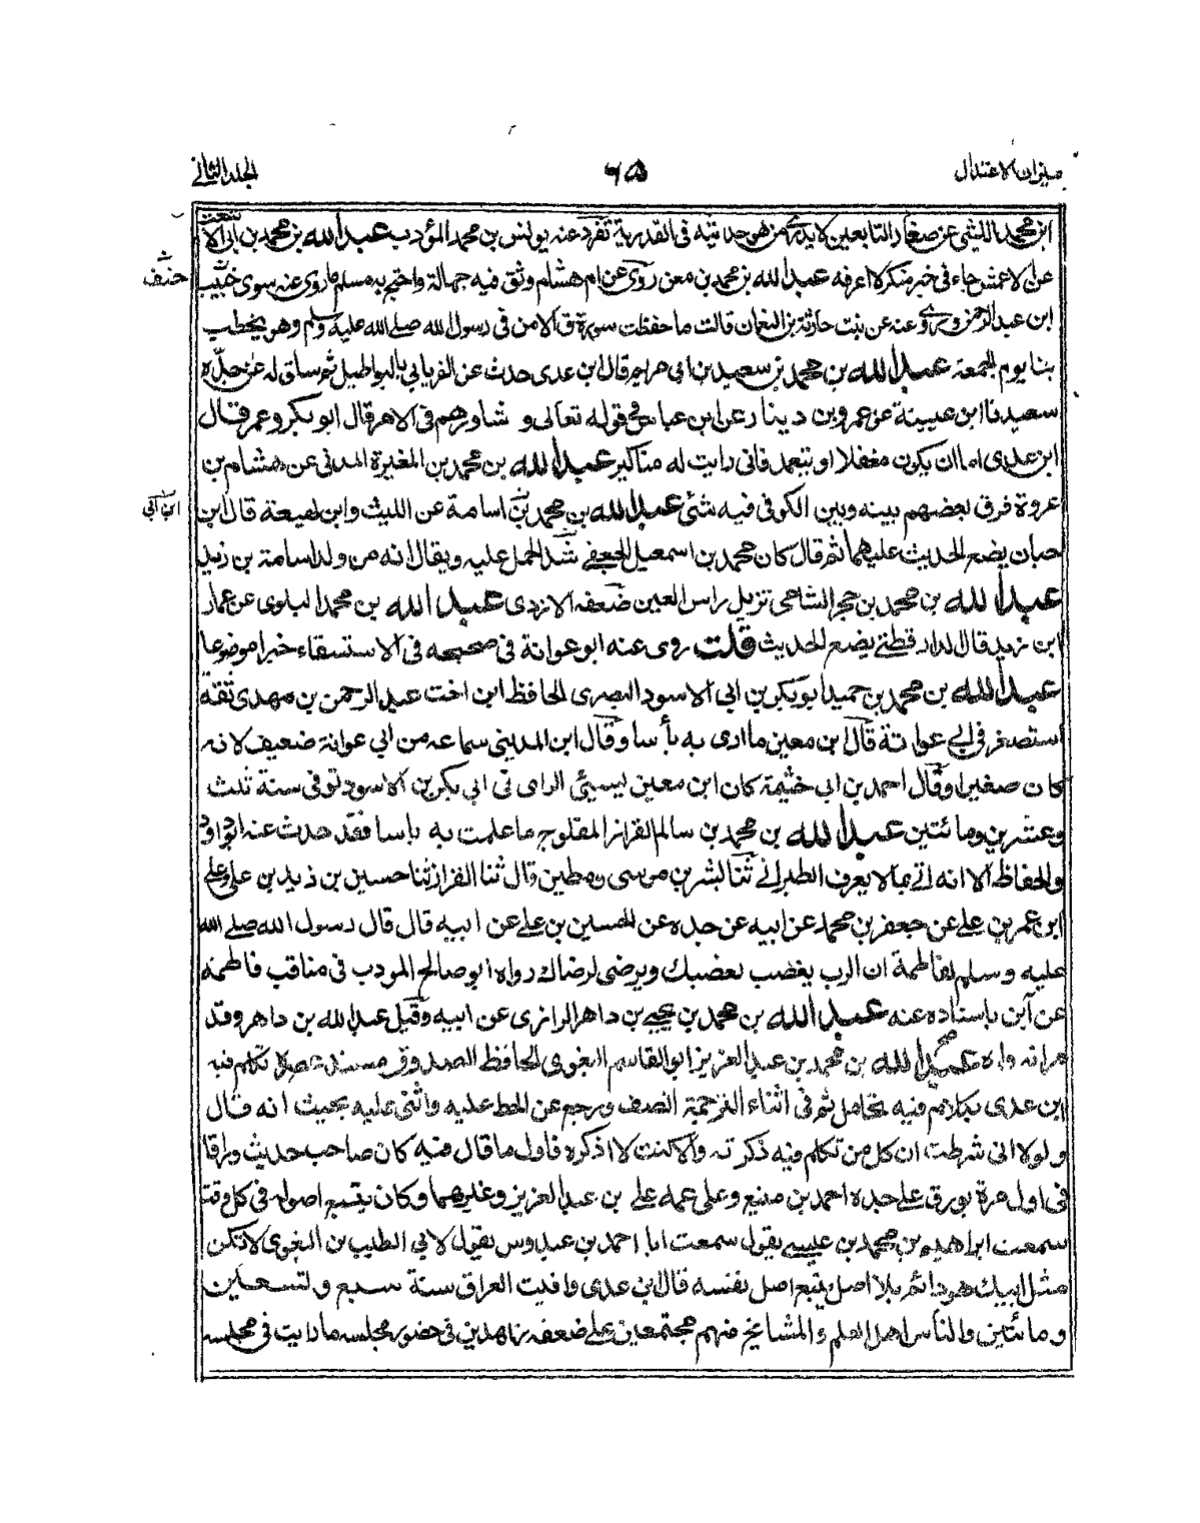 ميزان الاعتدال
٦٥
الجلد الثانى
ابن محمد الليثى عن صغار التابعين لا يدرى من هو حدثنيه فى القدرية تفرد عنه يونس بن محمد المؤدب عبد الله بن محمد بن
عن الاعمش جاء فى خبر منكر لا اعرفه عبد الله بن محمد بن معن روى عن ام هشام وثق فيه جهالة واحتج به مسلم ما روى عنه سوى خبيب
ابن عبد الرحمن وروى عنه عن بنت حارثة بن النعمان قالت ما حفظت سورة ق الا من فى رسول الله صلے الله عليه وسلم وهو يخطب
بنا يوم الجمعة عبد الله بن محمد بن سعيد بن ابى مريم قال ابن عدى حدث عن الفريابي بالبواطيل ثم ساق له عن جدّه
سعيد نا ابن عيينة عن عمرو بن دينار عن ابن عباس فى قوله تعالى و شاورهم فى الامر قال ابو بكر وعمر قال
ابن عدى اما ان يكون مغفلا او يتعمد فانى رايت له مناكير عبد الله بن محمد بن المغيرة المدنى عن هشام بن
عروة فرق بعضهم بينه وبين الكوفى فيه شئ عبد الله بن محمد بن اسامة عن الليث وابن لهيعة قال ابن
حبان يضع الحديث عليهما ثم قال كان محمد بن اسمعيل الجعفے شد الحمل عليه ويقال انه من ولد اسامة بن زيد
عبد الله بن محمد بن حجر الشامى نزيل راس العين ضعفه الازدى عبد الله بن محمد البلوى عن عمار
ابن زيد قال الدارقطنے يضع الحديث قلت روى عنه ابو عوانة فى صحيحه فى الاستسقاء خبرا موضوعا
عبد الله بن محمد بن حميد ابو بكر بن ابى الاسود البصرى الحافظ ابن اخت عبد الرحمن بن مهدى ثقة
استصغر فى ابے عوانة قال ابن معين ما ارى به بأسا وقال ابن المدينى سماعه من ابي عوانة ضعيف لانه
كان صغيرا وقال احمد بن ابى خثيمة كان ابن معين ليسيئ الراى فى ابى بكر بن الاسود توفى سنة ثلث
وعشرين ومائتين عبد الله بن محمد بن سالم القزاز المفلوج ما علمت به باسا فقد حدث عنه ابو داود
والحفاظ الا انه اتے بما لا يعرف الطبرانے ثنا بشر بن موسى ومطين قال ثنا القزاز ثنا حسين بن زيد بن على وعلى
ابن عمر بن علے عن جعفر بن محمد عن ابيه عن جده عن الحسين بن علے عن ابيه قال قال رسول الله صلے الله
عليه وسلم لفاطمة ان الرب يغضب لغضبك ويرضى لرضاك رواه ابو صالح المودب فى مناقب فاطمة
عن ابن باسناده عنه عبد الله بن محمد بن يحيے بن داهر الرازى عن ابيه وقيل عبد الله بن داهر وقد
مر انه واه عبد الله بن محمد بن عبد العزيز ابو القاسم البغوى الحافظ الصدوق مسند عصره تكلم فيه
ابن عدى بكلام فيه تحامل ثم فى اثناء الترجمة انصف ورجع عن الحط عليه واثنى عليه بحيث انه قال
ولولا انى شرطت ان كل من تكلم فيه ذكرته والا كنت لا اذكره فاول ما قال فيه كان صاحب حديث وراقا
فى اول مرة يورق علے جده احمد بن منيع وعلى عمه على بن عبد العزيز وغيرهما وكان يتبع اصوله فى كل وقت
سمعت ابراهيم بن محمد بن عيسے يقول سمعت ابا احمد بن عبدوس يقول لابي الطيب بن البغوى لا تكن
مثل ابيك هو دائم بلا اصل يتبع اصل نفسه قال ابن عدى وافيت العراق سنة سبع وتسعين
ومائتين والناس اهل العلم والمشايخ منهم مجتمعين على ضعفه زاهدين فى حضور مجلسه ما رايت فى مجلسه